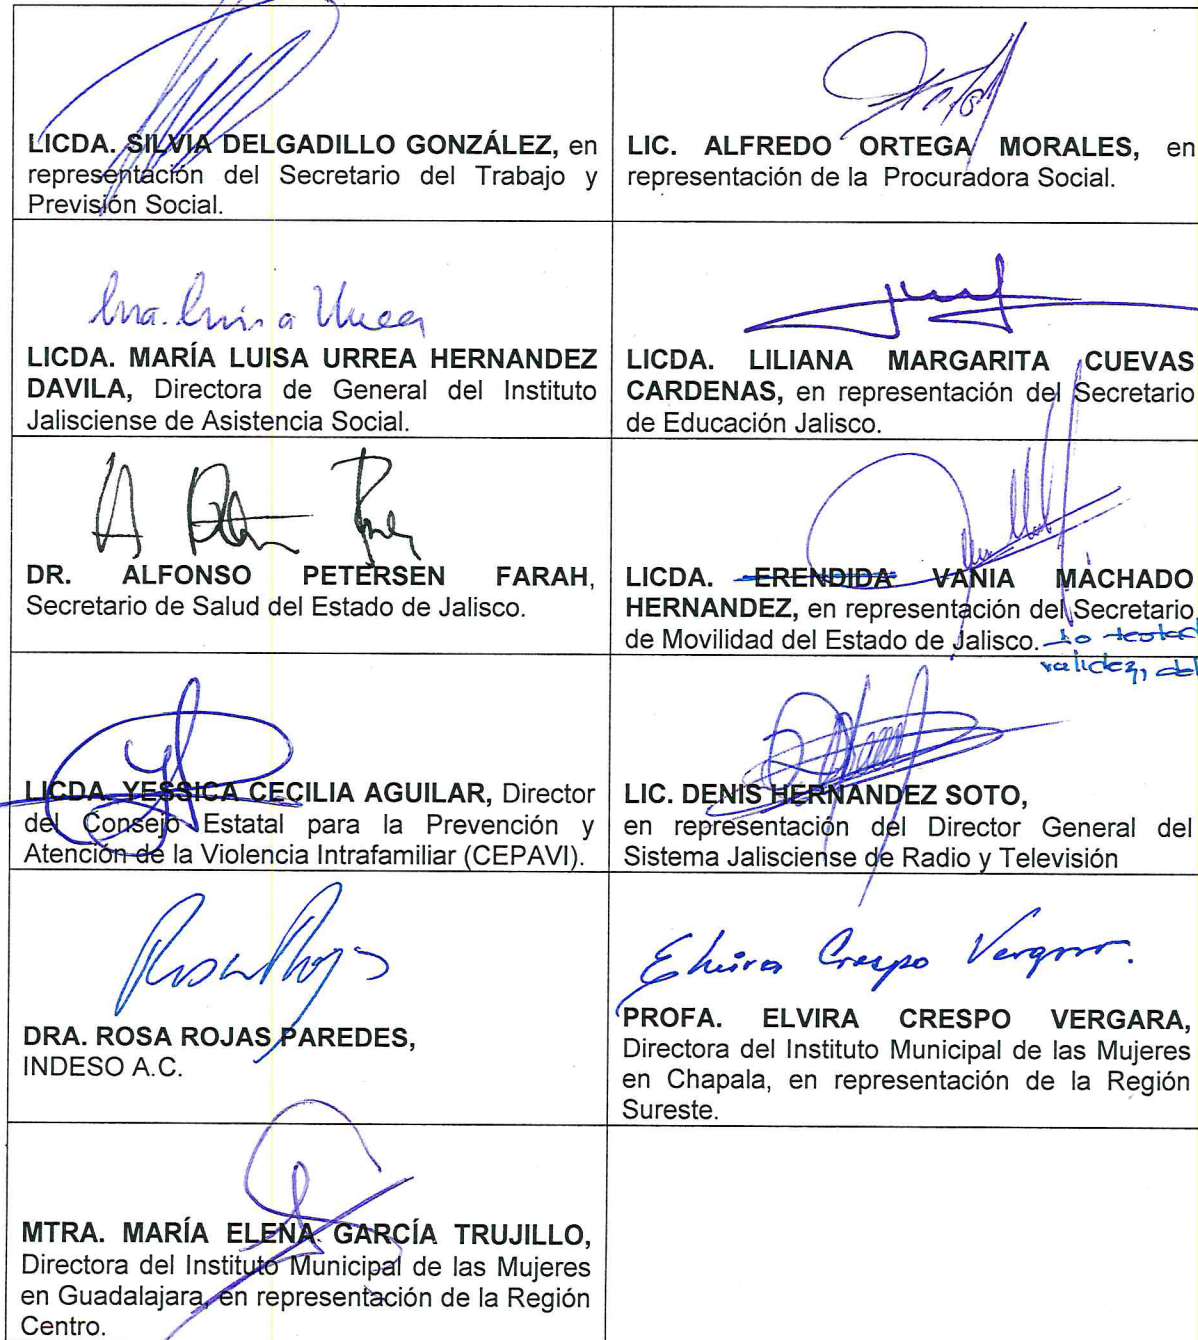 LICDA. SILVIA DELGADILLO GONZÁLEZ, en
representación del Secretario del Trabajo y
Previsión Social.
LIC. ALFREDO ORTEGA MORALES, en
representación de la Procuradora Social.
LICDA. MARÍA LUISA URREA HERNANDEZ
DAVILA, Directora de General del Instituto
Jalisciense de Asistencia Social.
LICDA. LILIANA MARGARITA CUEVAS
CARDENAS, en representación del Secretario
de Educación Jalisco.
DR. ALFONSO PETERSEN FARAH,
Secretario de Salud del Estado de Jalisco.
LICDA. ERENDIDA VANIA MACHADO
HERNANDEZ, en representación del Secretario
de Movilidad del Estado de Jalisco.
validez,
LICDA. YESSICA CECILIA AGUILAR, Director
del Consejo Estatal para la Prevención y
Atención de la Violencia Intrafamiliar (CEPAVI).
LIC. DENIS HERNANDEZ SOTO,
en representación del Director General del
Sistema Jalisciense de Radio y Televisión
Rosa Rojas
DRA. ROSA ROJAS PAREDES,
INDESO A.C.
Elvira Crespo Vergara.
PROFA. ELVIRA CRESPO VERGARA,
Directora del Instituto Municipal de las Mujeres
en Chapala, en representación de la Región
Sureste.
MTRA. MARÍA ELENA GARCÍA TRUJILLO,
Directora del Instituto Municipal de las Mujeres
en Guadalajara, en representación de la Región
Centro.